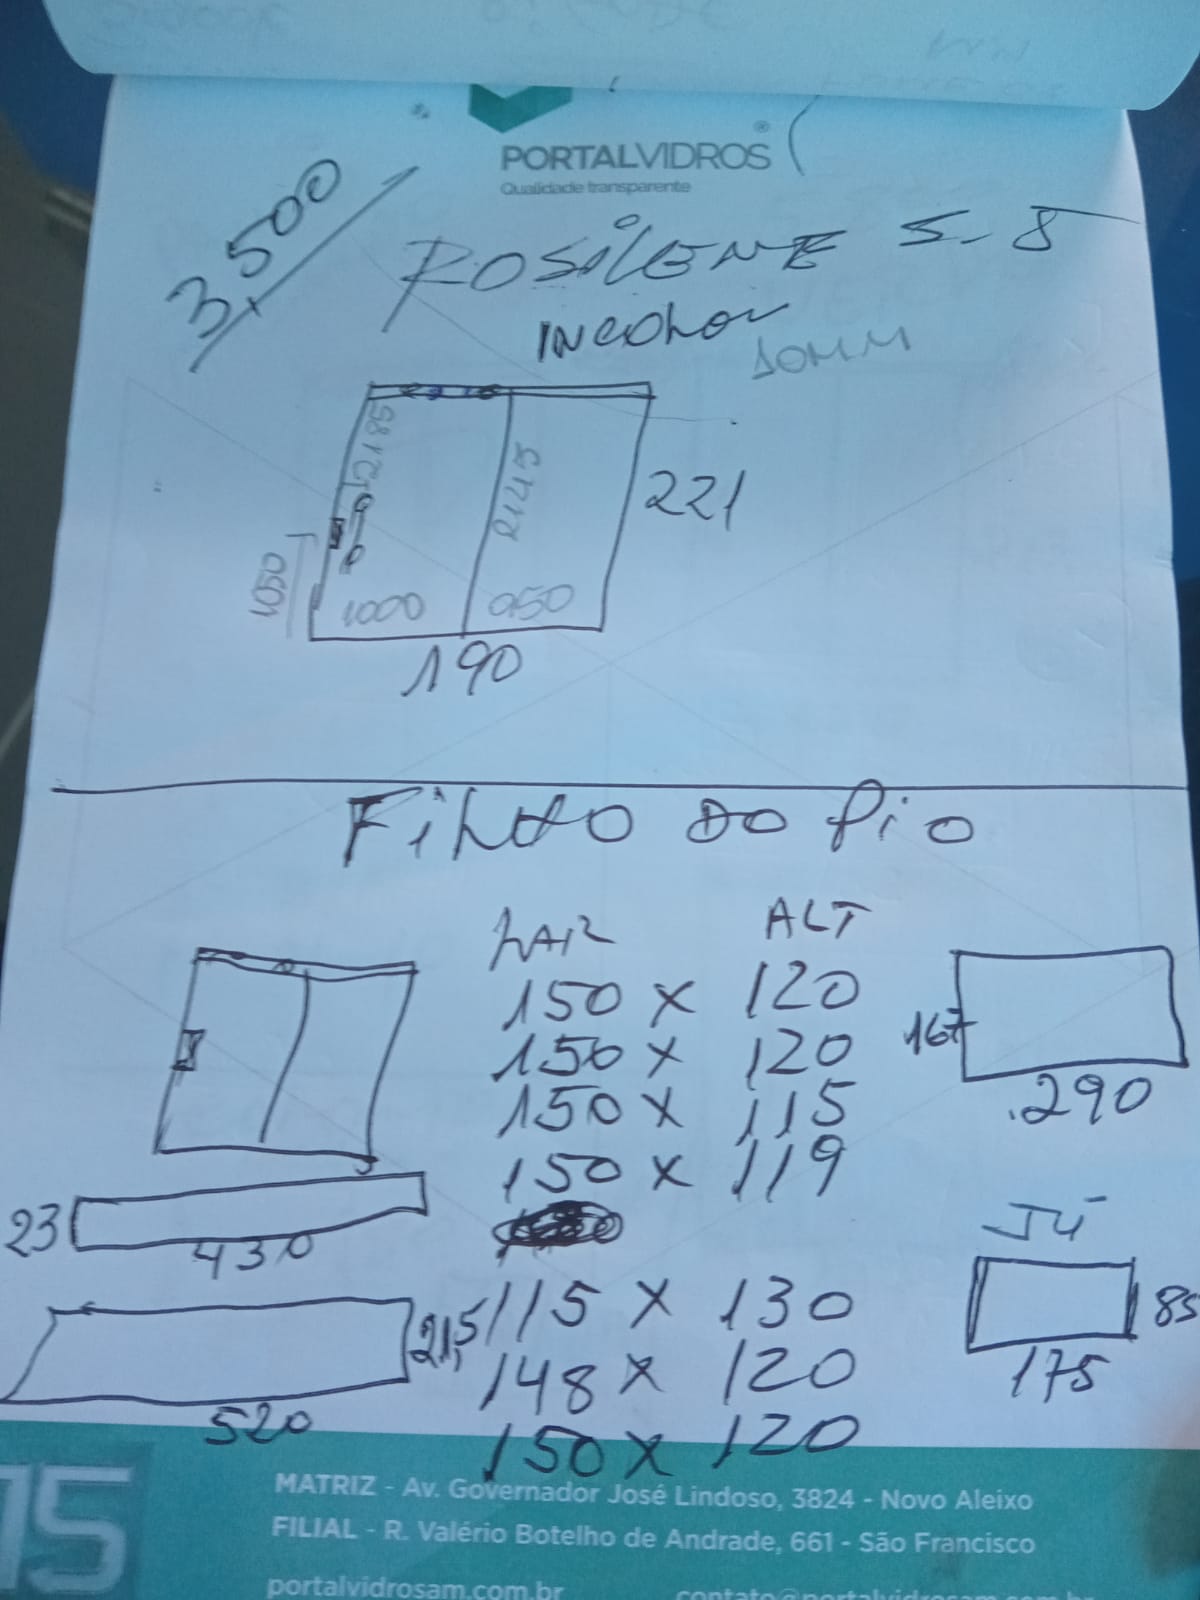 PORTALVIDROS®
Qualidade transparente
3.500
ROSILENE S-J
INCOLOR
10MM
2185
2145
221
1050
1000
950
190
FILHO DO PIO
LAR ALT
150 x 120
150 x 120
150 x 115
150 x 119
115 x 130
148 x 120
150 x 120
167
290
23
430
21,5
520
JÚ
85
175
15
MATRIZ - Av. Governador José Lindoso, 3824 - Novo Aleixo
FILIAL - R. Valério Botelho de Andrade, 661 - São Francisco
portalvidrosam.com.br